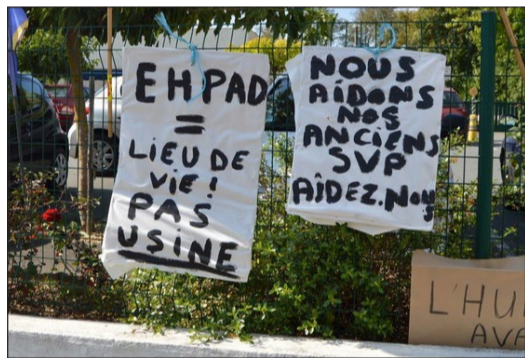 EHPAD
=
LIEU DE
VIE!
PAS
USINE
NOUS
AIDONS
NOS
ANCIENS
SVP
AIDEZ.NOUS
L'HU
AV